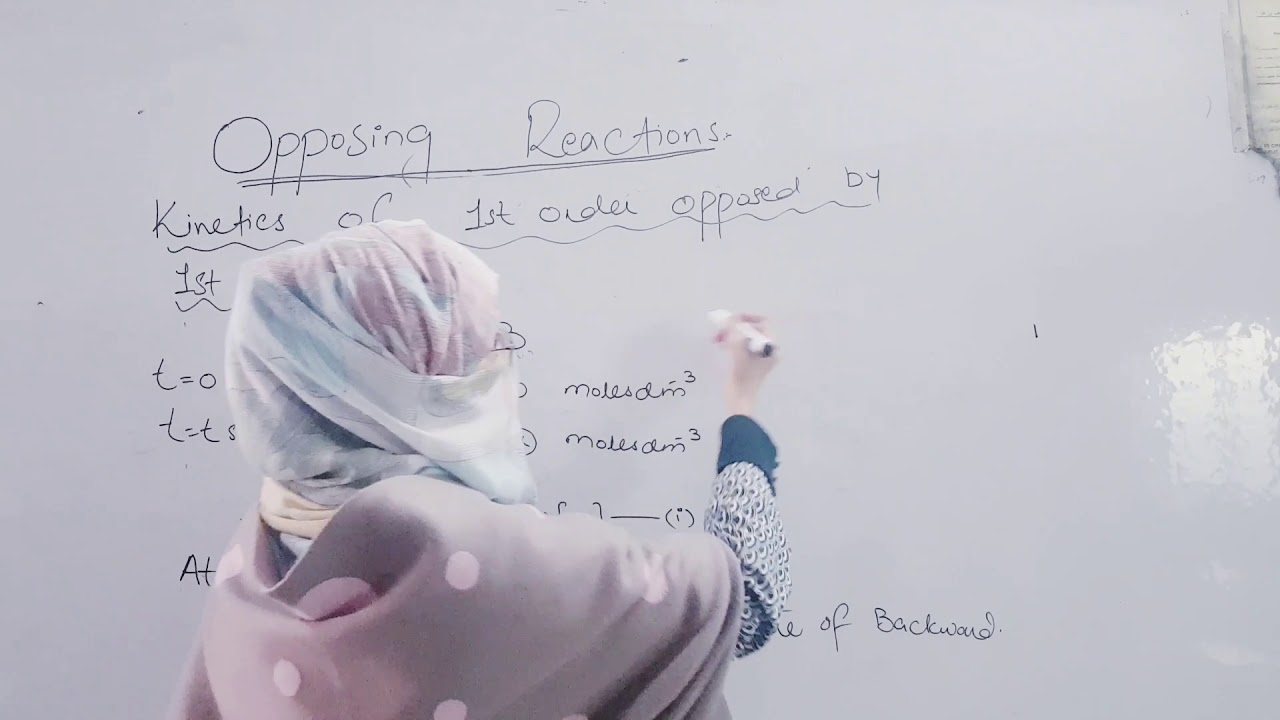 Opposing Reactions.
Kinetics of 1st order opposed by
1st
B
t=0 molesdm⁻³
t=t s molesdm⁻³
[ ] — (i)
At
of Backward.